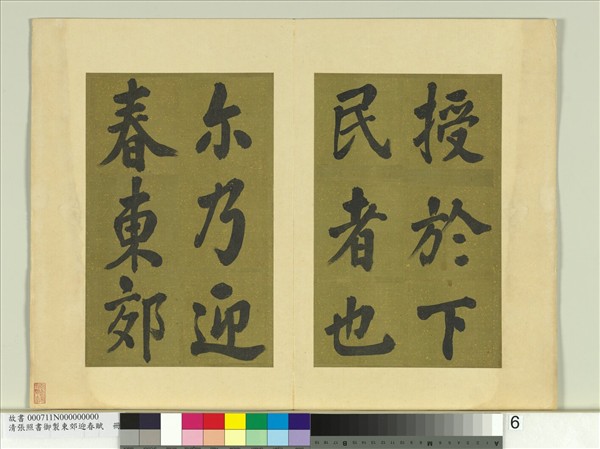 授於下
民者也
尔乃迎
春東郊
故書 000711N000000000
清張照書御製東郊迎春賦 冊
6